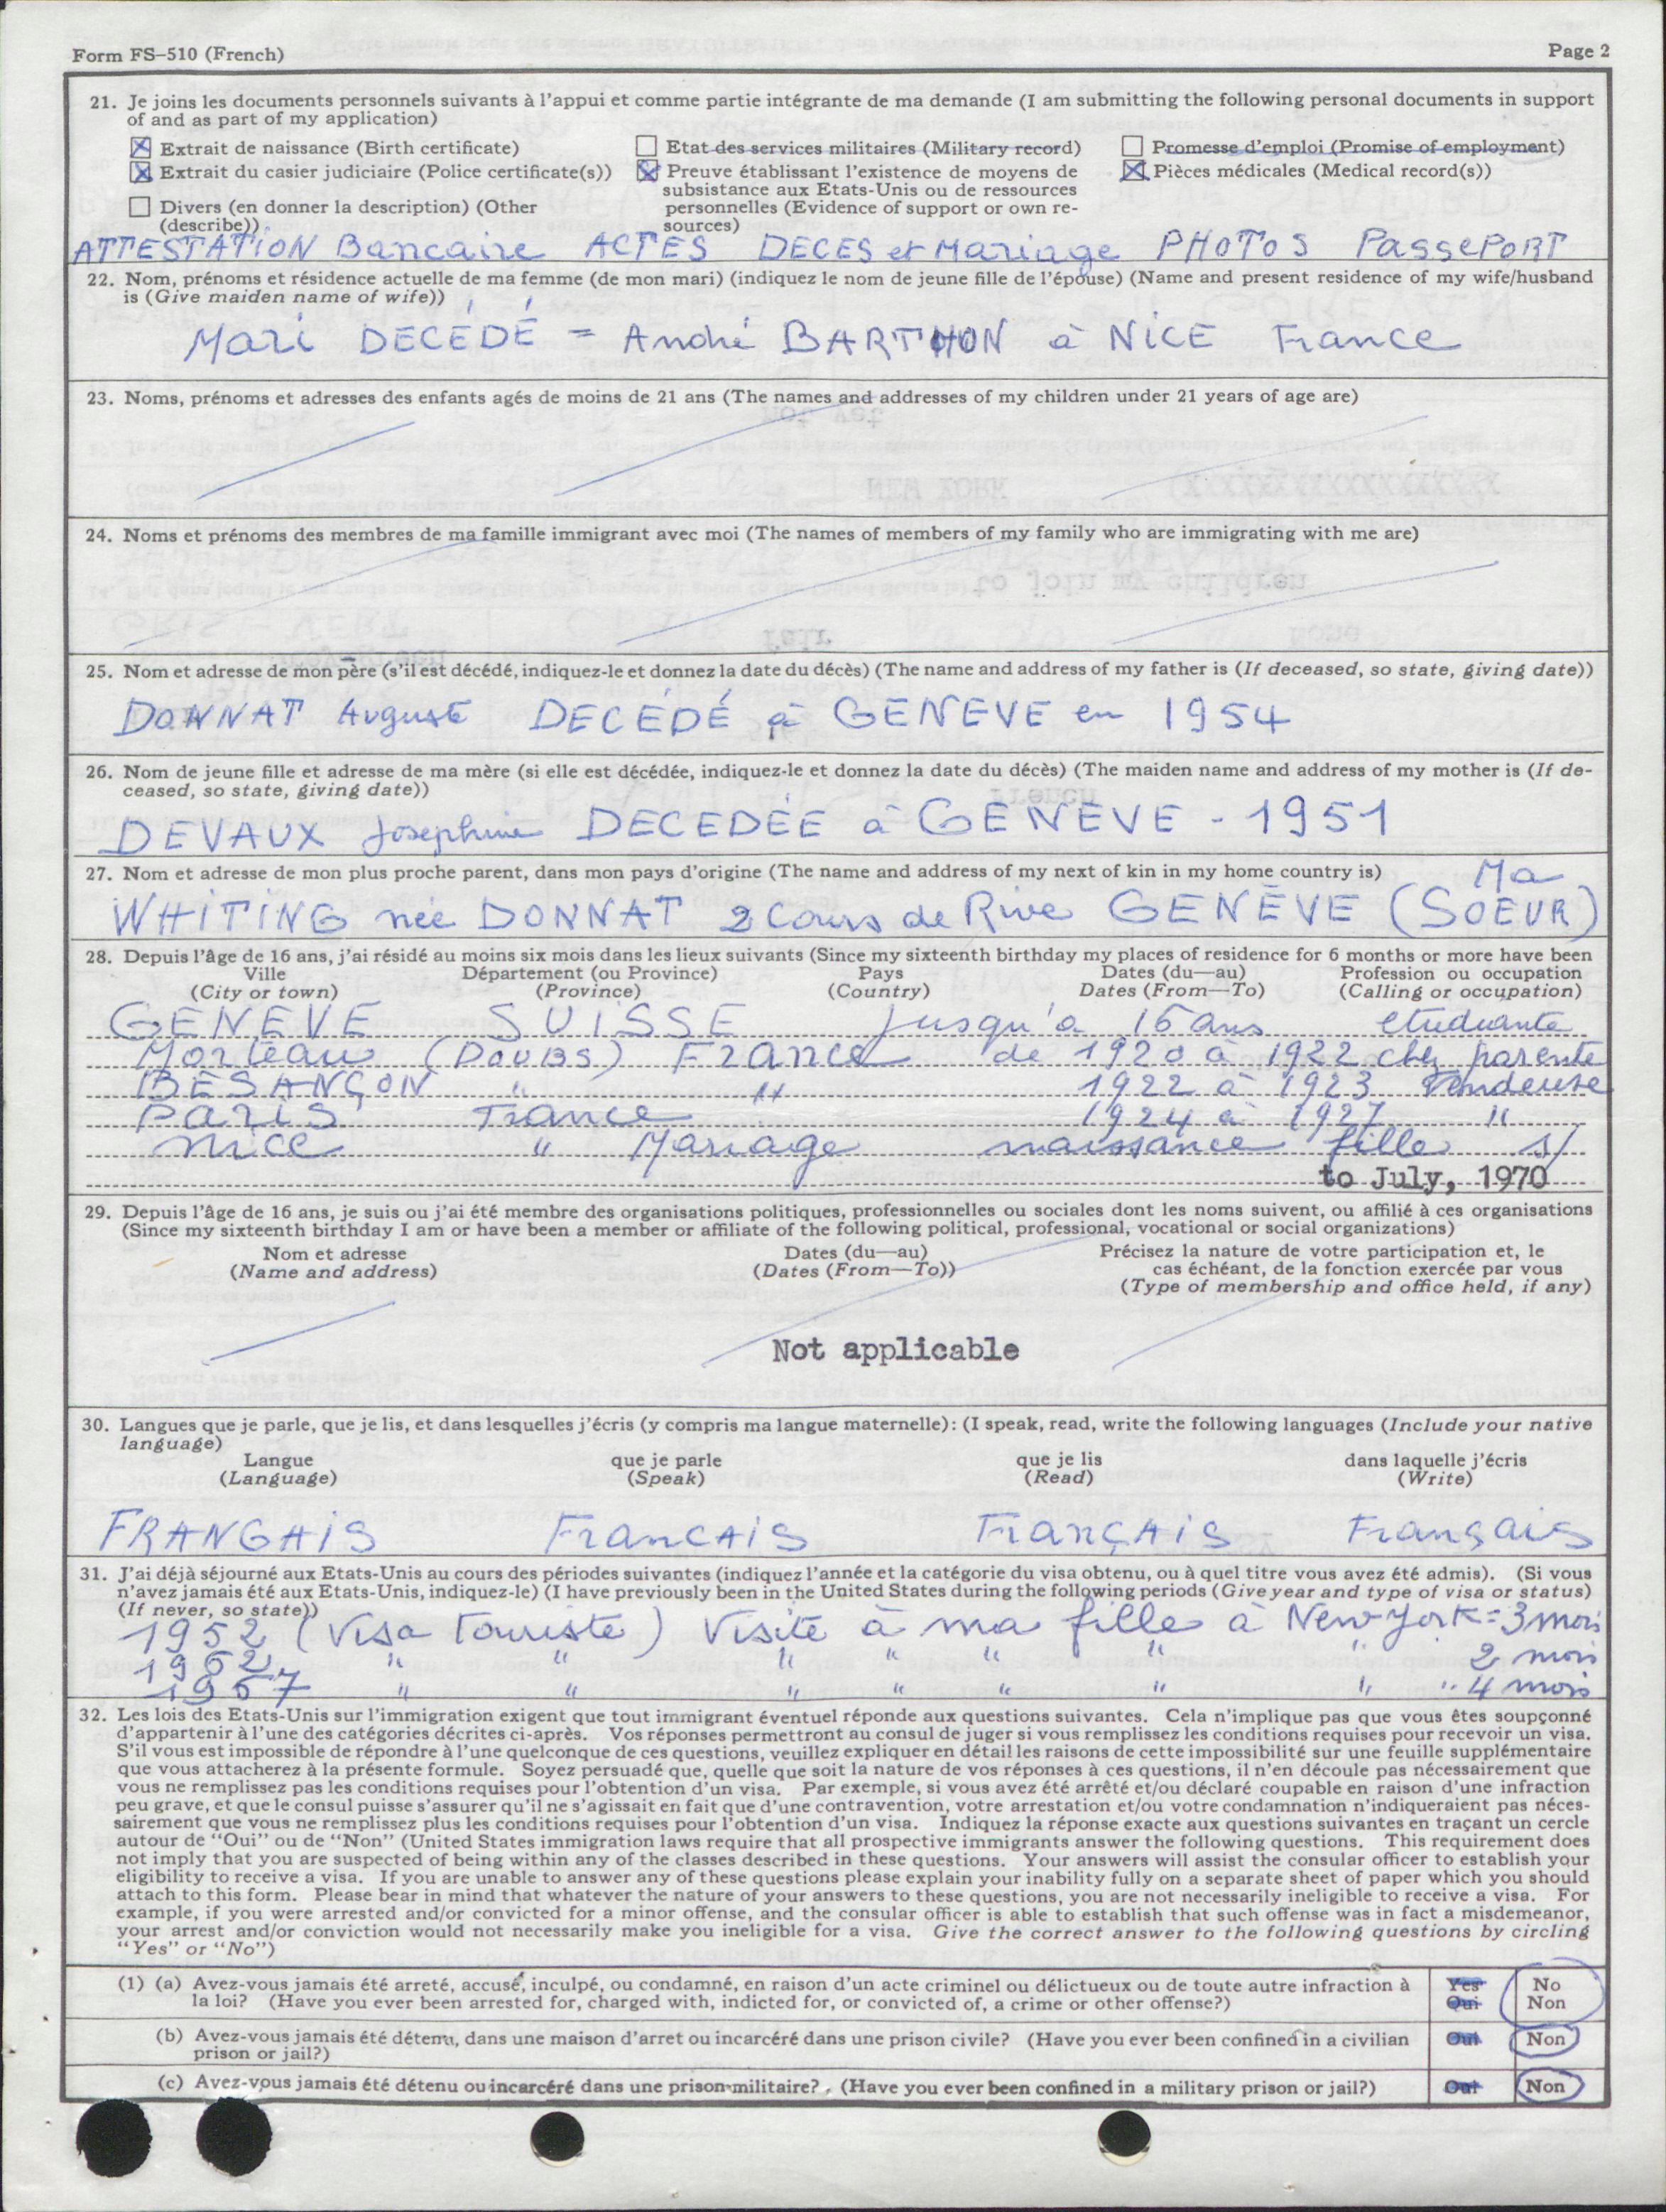 Form FS-510 (French)
Page 2
21. Je joins les documents personnels suivants à l'appui et comme partie intégrante de ma demande (I am submitting the following personal documents in support
of and as part of my application)
Extrait de naissance (Birth certificate)
Etat des services militaires (Military record)
Promesse d'emploi (Promise of employment)
Extrait du casier judiciaire (Police certificate(s))
Preuve établissant l'existence de moyens de
subsistance aux Etats-Unis ou de ressources
personnelles (Evidence of support or own re-
sources)
Pièces médicales (Medical record(s))
Divers (en donner la description) (Other
(describe))
ATTESTATION Bancaire ACTES DECES et Mariage PHOTOS PassePORT
22. Nom, prénoms et résidence actuelle de ma femme (de mon mari) (indiquez le nom de jeune fille de l'épouse) (Name and present residence of my wife/husband
is (Give maiden name of wife))
Mari DECÉDÉ = André BARTHON à NICE France
23. Noms, prénoms et adresses des enfants agés de moins de 21 ans (The names and addresses of my children under 21 years of age are)
24. Noms et prénoms des membres de ma famille immigrant avec moi (The names of members of my family who are immigrating with me are)
25. Nom et adresse de mon père (s'il est décédé, indiquez-le et donnez la date du décès) (The name and address of my father is (If deceased, so state, giving date))
DONNAT Auguste DECÉDÉ à GENEVE en 1954
26. Nom de jeune fille et adresse de ma mère (si elle est décédée, indiquez-le et donnez la date du décès) (The maiden name and address of my mother is (If de-
ceased, so state, giving date))
DEVAUX Josephine DECEDÉE à GENEVE - 1951
27. Nom et adresse de mon plus proche parent, dans mon pays d'origine (The name and address of my next of kin in my home country is)
WHITING née DONNAT 2 Cours de Rive GENÈVE (Ma SOEUR)
28. Depuis l'âge de 16 ans, j'ai résidé au moins six mois dans les lieux suivants (Since my sixteenth birthday my places of residence for 6 months or more have been
Ville Département (ou Province) Pays Dates (du—au) Profession ou occupation
(City or town) (Province) (Country) Dates (From—To) (Calling or occupation)
GENEVE SUISSE jusqu'à 16 ans etudiante
Morteau (DOUBS) France de 1920 à 1922 chez parente
BESANÇON " " 1922 à 1923 Vendeuse
Paris France 1924 à 1927 "
Nice " Mariage naissance fille s/
to July, 1970
29. Depuis l'âge de 16 ans, je suis ou j'ai été membre des organisations politiques, professionnelles ou sociales dont les noms suivent, ou affilié à ces organisations
(Since my sixteenth birthday I am or have been a member or affiliate of the following political, professional, vocational or social organizations)
Nom et adresse Dates (du—au) Précisez la nature de votre participation et, le
(Name and address) (Dates (From—To)) cas échéant, de la fonction exercée par vous
(Type of membership and office held, if any)
Not applicable
30. Langues que je parle, que je lis, et dans lesquelles j'écris (y compris ma langue maternelle): (I speak, read, write the following languages (Include your native
language)
Langue que je parle que je lis dans laquelle j'écris
(Language) (Speak) (Read) (Write)
FRANGAIS FrancAIS FrançAIS Français
31. J'ai déjà séjourné aux Etats-Unis au cours des périodes suivantes (indiquez l'année et la catégorie du visa obtenu, ou à quel titre vous avez été admis). (Si vous
n'avez jamais été aux Etats-Unis, indiquez-le) (I have previously been in the United States during the following periods (Give year and type of visa or status)
(If never, so state))
1952 (Visa Touriste) Visite à ma fille à New York = 3 mois
1962 " " " " " " " 2 mois
1967 " " " " " " " " 4 mois
32. Les lois des Etats-Unis sur l'immigration exigent que tout immigrant éventuel réponde aux questions suivantes. Cela n'implique pas que vous êtes soupçonné
d'appartenir à l'une des catégories décrites ci-après. Vos réponses permettront au consul de juger si vous remplissez les conditions requises pour recevoir un visa.
S'il vous est impossible de répondre à l'une quelconque de ces questions, veuillez expliquer en détail les raisons de cette impossibilité sur une feuille supplémentaire
que vous attacherez à la présente formule. Soyez persuadé que, quelle que soit la nature de vos réponses à ces questions, il n'en découle pas nécessairement que
vous ne remplissez pas les conditions requises pour l'obtention d'un visa. Par exemple, si vous avez été arrêté et/ou déclaré coupable en raison d'une infraction
peu grave, et que le consul puisse s'assurer qu'il ne s'agissait en fait que d'une contravention, votre arrestation et/ou votre condamnation n'indiqueraient pas néces-
sairement que vous ne remplissez plus les conditions requises pour l'obtention d'un visa. Indiquez la réponse exacte aux questions suivantes en traçant un cercle
autour de "Oui" ou de "Non" (United States immigration laws require that all prospective immigrants answer the following questions. This requirement does
not imply that you are suspected of being within any of the classes described in these questions. Your answers will assist the consular officer to establish your
eligibility to receive a visa. If you are unable to answer any of these questions please explain your inability fully on a separate sheet of paper which you should
attach to this form. Please bear in mind that whatever the nature of your answers to these questions, you are not necessarily ineligible to receive a visa. For
example, if you were arrested and/or convicted for a minor offense, and the consular officer is able to establish that such offense was in fact a misdemeanor,
your arrest and/or conviction would not necessarily make you ineligible for a visa. Give the correct answer to the following questions by circling
"Yes" or "No")
(1) (a) Avez-vous jamais été arreté, accusé, inculpé, ou condamné, en raison d'un acte criminel ou délictueux ou de toute autre infraction à Yes No
la loi? (Have you ever been arrested for, charged with, indicted for, or convicted of, a crime or other offense?) Oui Non
(b) Avez-vous jamais été détenu, dans une maison d'arret ou incarcéré dans une prison civile? (Have you ever been confined in a civilian Oui Non
prison or jail?)
(c) Avez-vous jamais été détenu ou incarcéré dans une prison militaire? (Have you ever been confined in a military prison or jail?) Oui Non